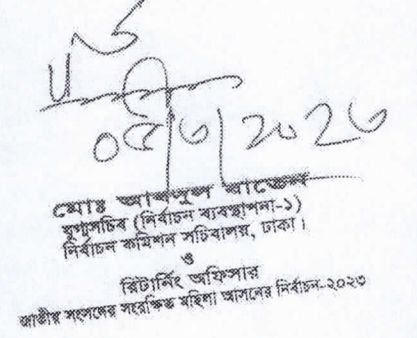 ০৫/৩/২০২৩
মোঃ আবদুল বাতেন
যুগ্মসচিব (নির্বাচন ব্যবস্থাপনা-১)
নির্বাচন কমিশন সচিবালয়, ঢাকা।
ও
রিটার্নিং অফিসার
জাতীয় সংসদের সংরক্ষিত মহিলা আসনের নির্বাচন-২০২৩